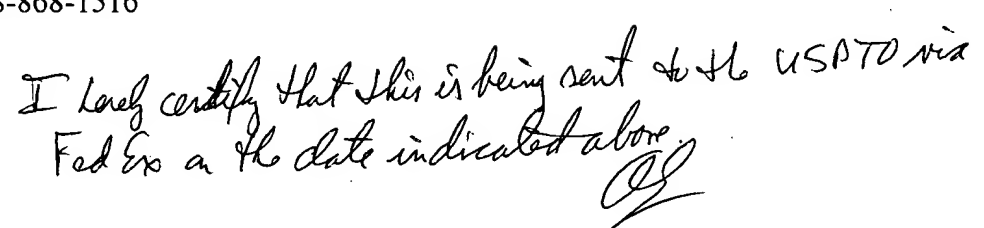 -868-1516
I hereby certify that this is being sent to the USPTO via
Fed Ex on the date indicated above.